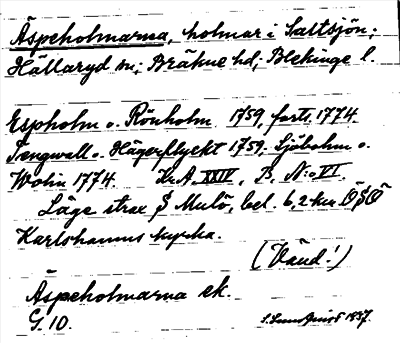 Äspeholmarna, holmar i Saltsjön;
Hällaryd sn; Bräkne hd; Blekinge l.
Espholm o. Rönholm 1759, forts. 1774.
Tengwall o. Hägerflyckt 1759. Sjöbohm o.
Wolin 1774. Kr.A. XXIV, B, N:o VI.
Läge strax S Mulö, bel. 6,2 km ÖSÖ
Karlshamns kyrka.
(Vänd!)
Äspeholmarna ek.
G. 10.
S. Lundquist 1937.